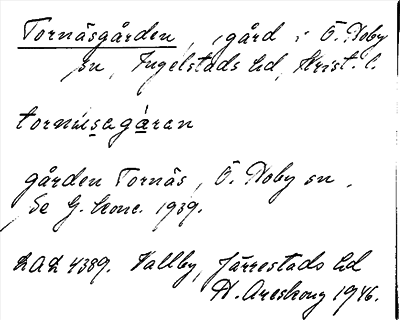 Tornäsgården, gård i Ö. Hoby
sn, Ingelstads hd, Krist. l.
tornusagáran
gården Tornäs, Ö. Hoby sn,
Se G. konc. 1939.
LAL 4389. Vallby, Järrestads hd
H. Areskoug 1946.